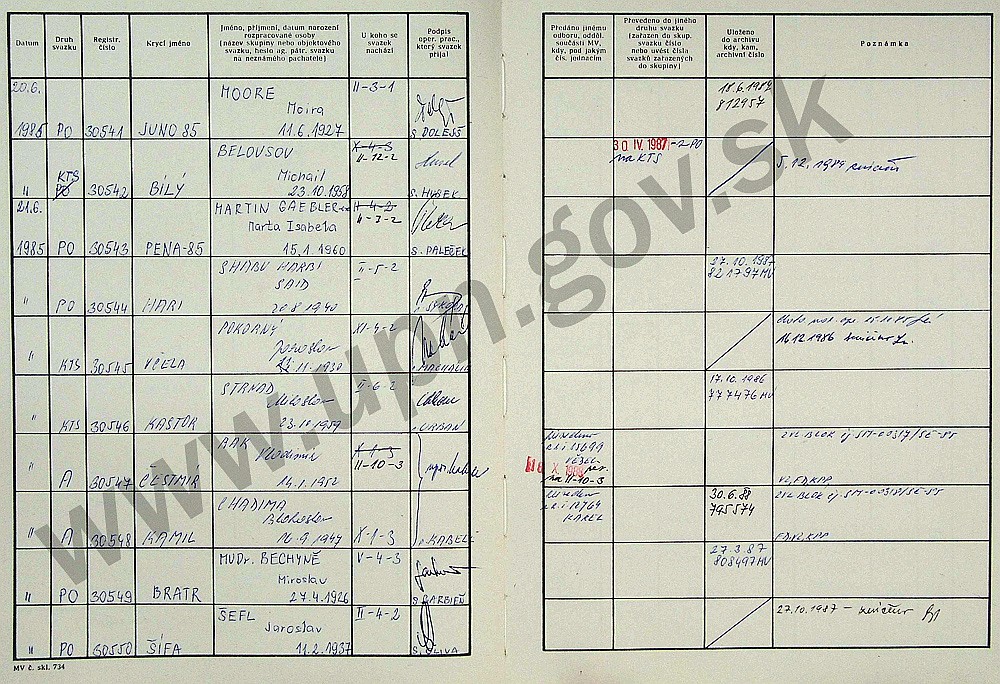 Datum
Druh svazku
Registr. číslo
Krycí jméno
Jméno, příjmení, datum narození
rozpracované osoby
(název skupiny nebo objektového
svazku, heslo ag. pátr. svazku
na neznámého pachatele)
U koho se
svazek
nachází
Podpis
oper. prac.,
který svazek
přijal
Předáno jinému
odboru, odděl.
součásti MV,
kdy, pod jakým
čís. jednacím
Převedeno do jiného
druhu svazku
(zařazen do skup.
svazku číslo
nebo uvést čísla
svazků zařazených
do skupiny)
Uloženo
do archivu
kdy, kam,
archivní číslo
Poznámka
20.6. MOORE II-3-1
Moira 812957
1985 PO 30541 JUNO 85 11.6.1927 S. DOLEJŠ
BELOUSOV X-4-3 30 IV. 1987 - z PO
KTS Michail II-12-2 na KTS 5.12.1989
" PO 30542 BÍLÝ 23.10.1958
21.6. MARTIN GAEBLER II-4-2
Marta Isabela II-3-2
1985 PO 30543 PENA-85 15.1.1960 S. PALEČEK
SHABU HARBI II-5-2 27.10.1987
SAID 821797 MV
" PO 30544 HARI 20.8.1940
POKORNÝ XI-4-2
Jaroslav 16.12.1986
" KTS 30545 VČELA
STRNAD II-6-2 17.10.1986
Miloslav 777476 MV
" KTS 30546 KASTOR URBAN
X-1-3 ZVL. BLOK čj. SM-00317/SE-85
Vladimír II-10-3
" A 30547 ČESTMÍR 14.1.1952 na II-10-3
CHADIMA 30.6.88 ZVL. BLOK čj. SM-00318/SE-85
795574
KAREL
" A 30548 KAMIL 16.9.1947 X-1-3 KABELE
MUDr. BECHYNĚ V-4-3 27.3.87
Miroslav 808497 MV
" PO 30549 BRATR 27.4.1926
ŠEFL II-4-2 27.10.1987
Jaroslav
" PO 30550 ŠÍFA 11.2.1937 S. OLIVA
MV č. skl. 734
www.upn.gov.sk